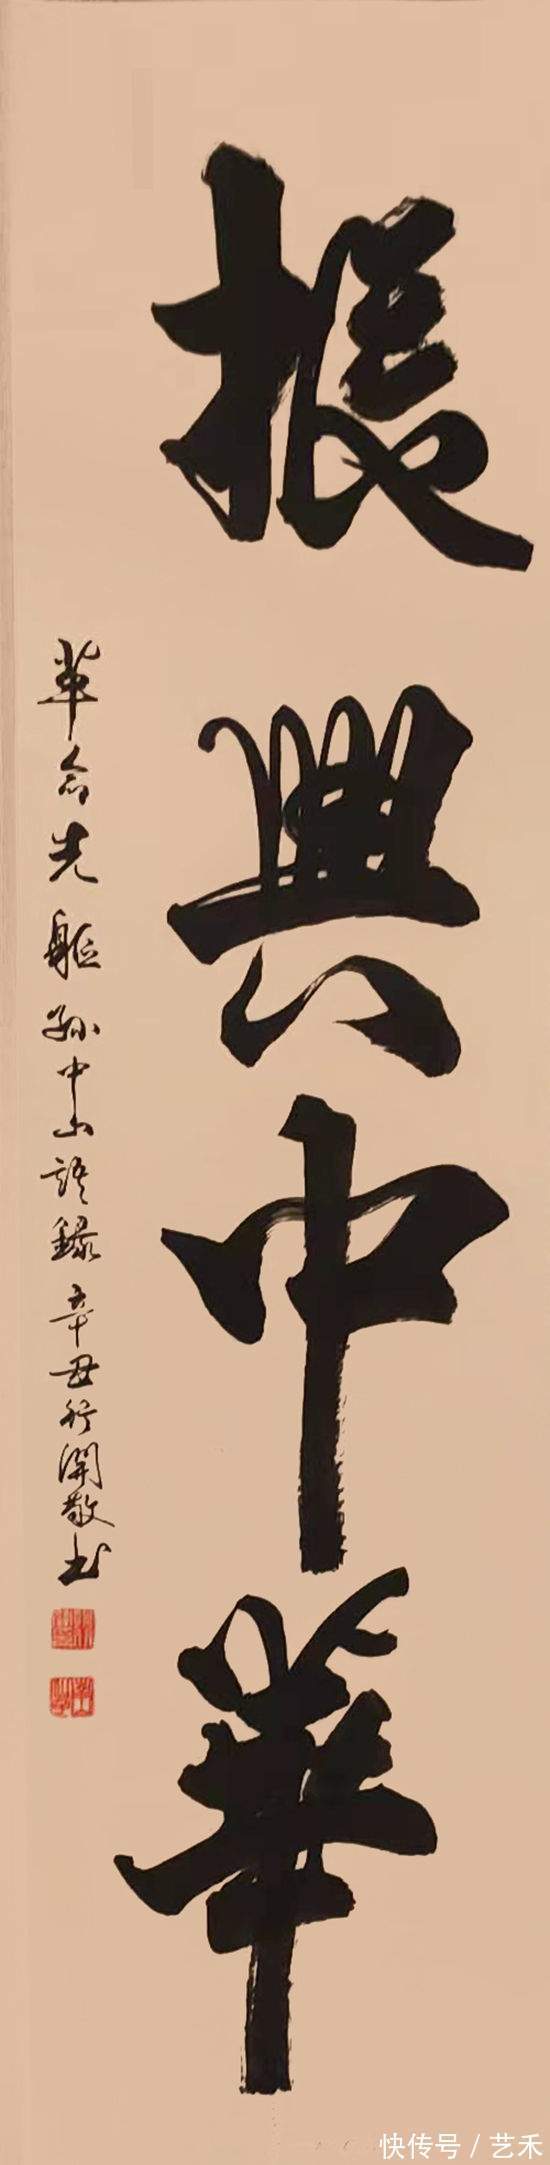 振興中華
革命先驅孫中山語録辛丑行開敬书
快传号/艺禾